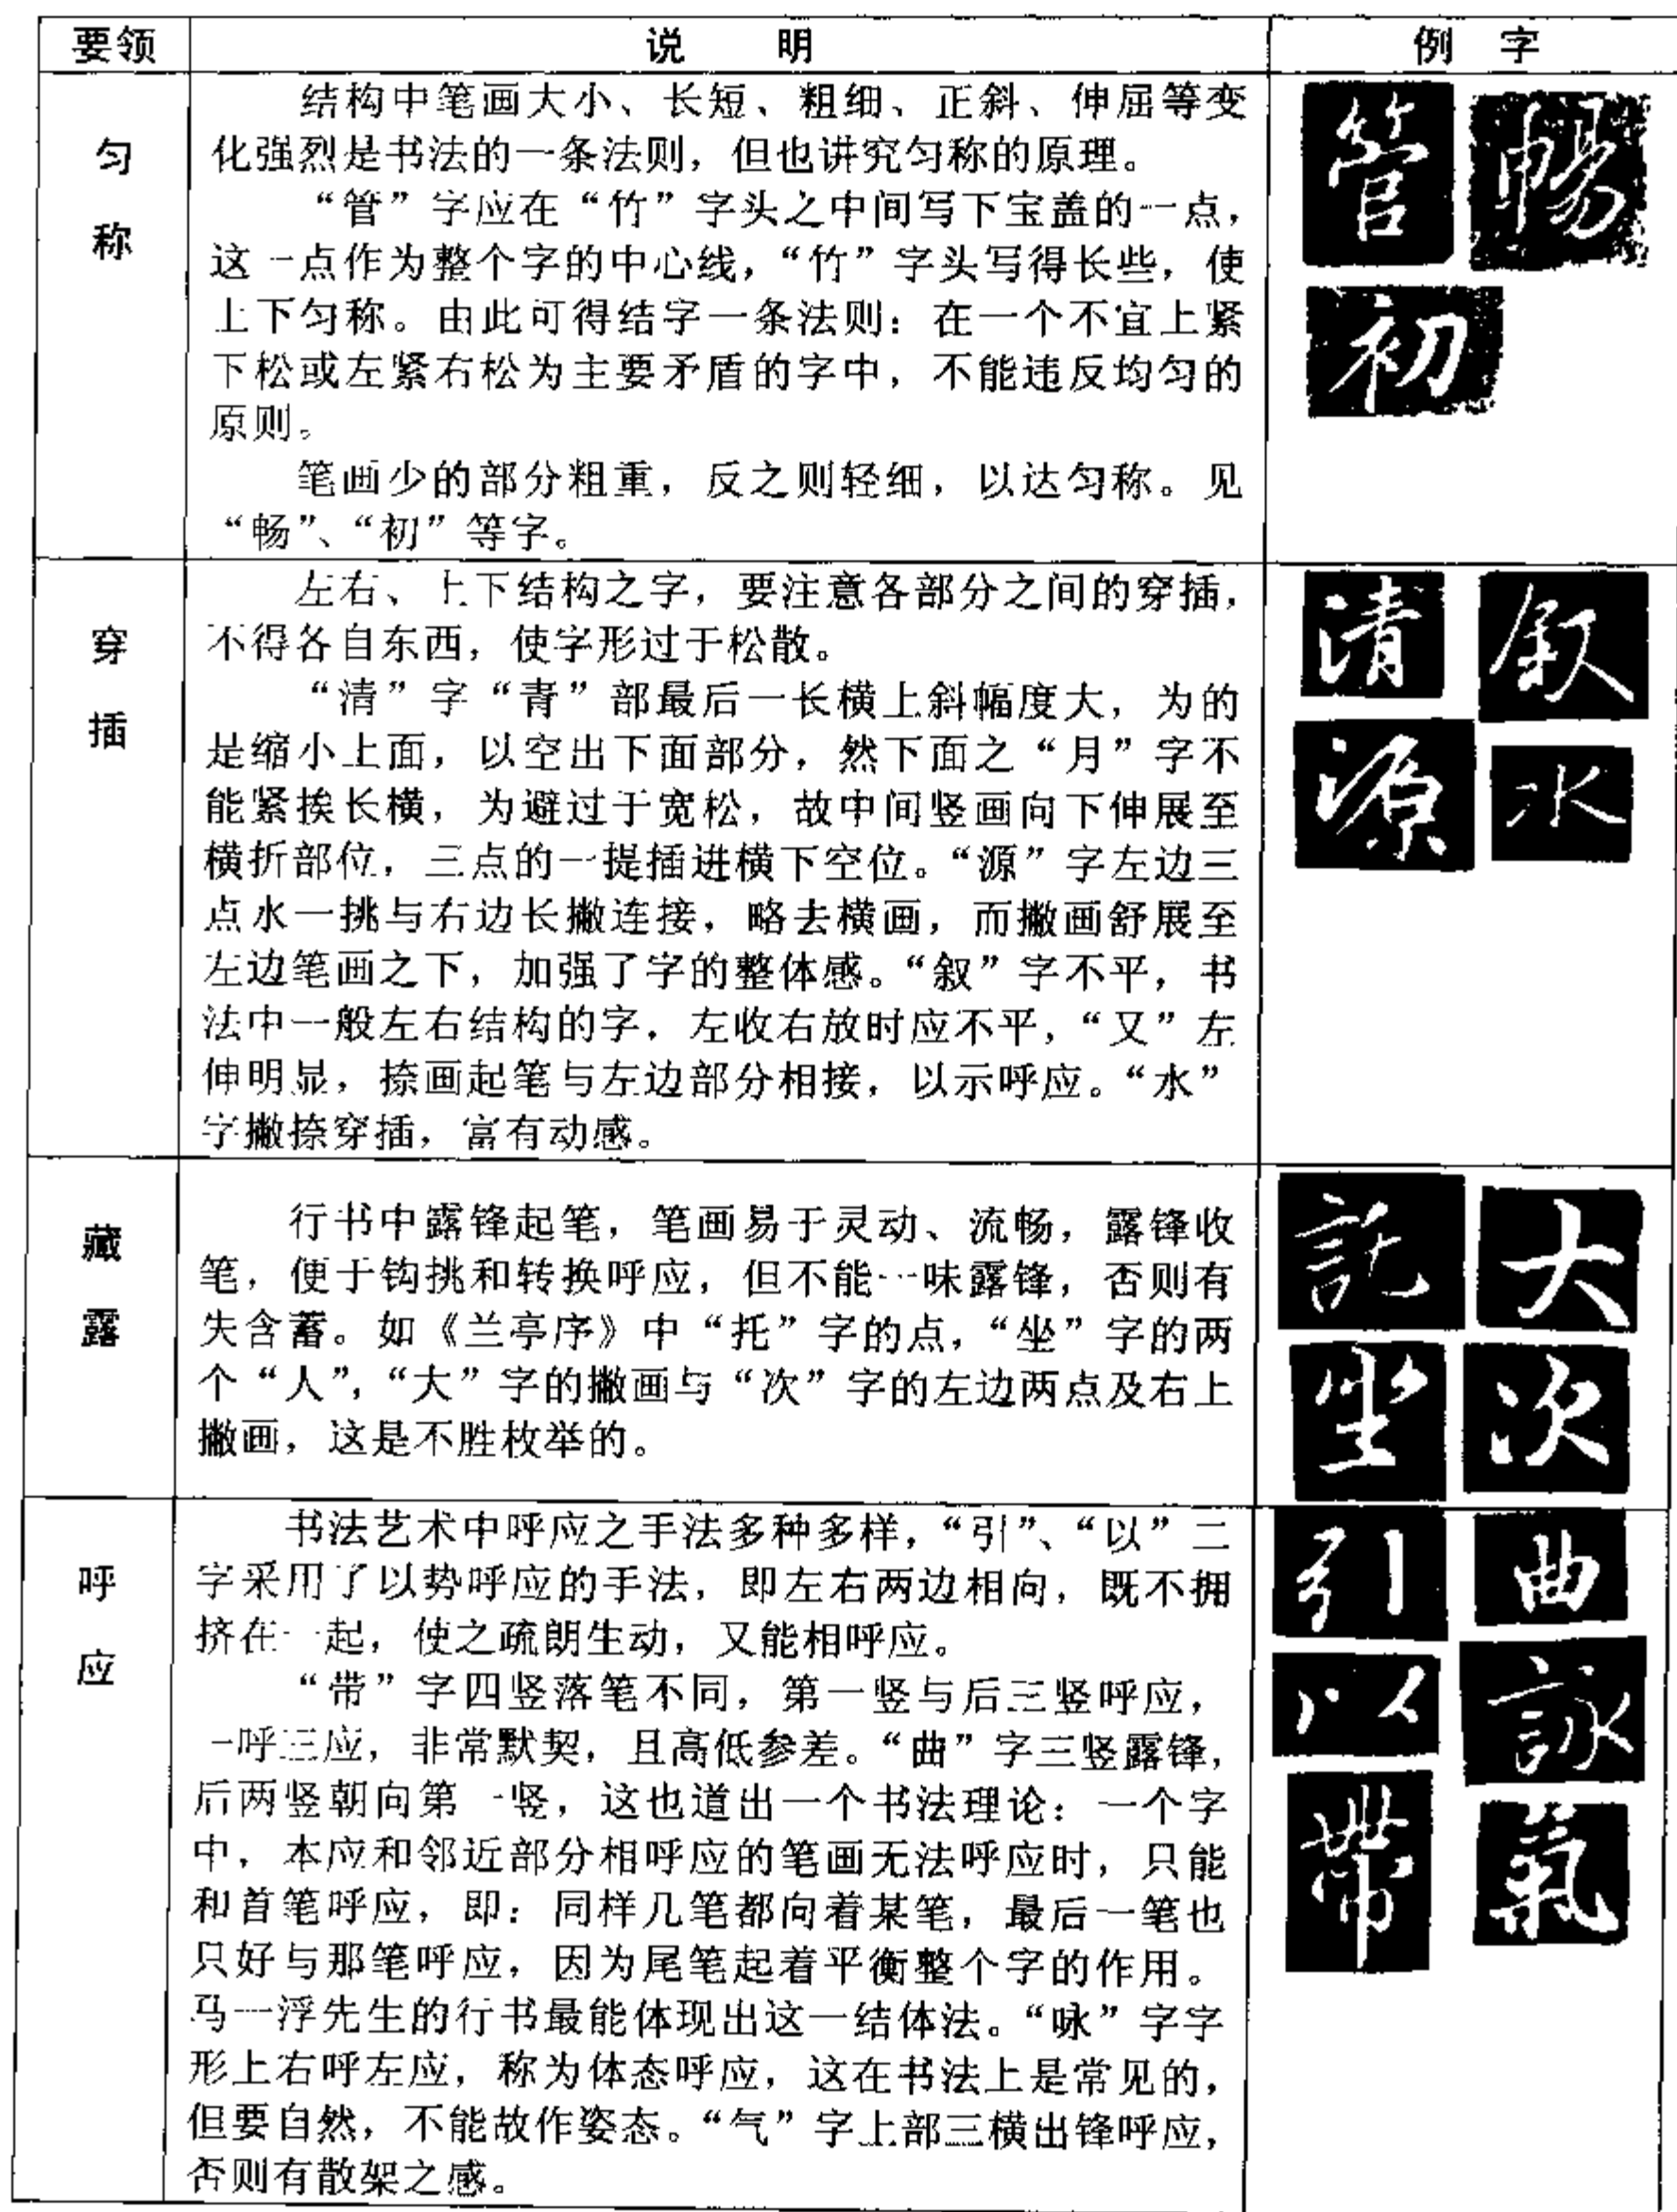 要领 说 明 例 字
匀
称
结构中笔画大小、长短、粗细、正斜、伸屈等变
化强烈是书法的一条法则，但也讲究匀称的原理。
“管”字应在“竹”字头之中间写下宝盖的一点，
这一点作为整个字的中心线，“竹”字头写得长些，使
上下匀称。由此可得结字一条法则：在一个不宜上紧
下松或左紧右松为主要矛盾的字中，不能违反均匀的
原则。
笔画少的部分粗重，反之则轻细，以达匀称。见
“畅”、“初”等字。
管 暢
初
穿
插
左右、上下结构之字，要注意各部分之间的穿插，
不得各自东西，使字形过于松散。
“清”字“青”部最后一长横上斜幅度大，为的
是缩小上面，以空出下面部分，然下面之“月”字不
能紧挨长横，为避过于宽松，故中间竖画向下伸展至
横折部位，三点的一提插进横下空位。“源”字左边三
点水一挑与右边长撇连接，略去横画，而撇画舒展至
左边笔画之下，加强了字的整体感。“叙”字不平，书
法中一般左右结构的字，左收右放时应不平，“又”左
伸明显，捺画起笔与左边部分相接，以示呼应。“水”
字撇捺穿插，富有动感。
清 叙
源 水
藏
露
行书中露锋起笔，笔画易于灵动、流畅，露锋收
笔，便于钩挑和转换呼应，但不能一味露锋，否则有
失含蓄。如《兰亭序》中“托”字的点，“坐”字的两
个“人”，“大”字的撇画与“次”字的左边两点及右上
撇画，这是不胜枚举的。
託 大
坐 次
呼
应
书法艺术中呼应之手法多种多样，“引”、“以”二
字采用了以势呼应的手法，即左右两边相向，既不拥
挤在一起，使之疏朗生动，又能相呼应。
“带”字四竖落笔不同，第一竖与后三竖呼应，
一呼三应，非常默契，且高低参差。“曲”字三竖露锋，
后两竖朝向第一竖，这也道出一个书法理论：一个字
中，本应和邻近部分相呼应的笔画无法呼应时，只能
和首笔呼应，即：同样几笔都向着某笔，最后一笔也
只好与那笔呼应，因为尾笔起着平衡整个字的作用。
马一浮先生的行书最能体现出这一结体法。“咏”字字
形上右呼左应，称为体态呼应，这在书法上是常见的，
但要自然，不能故作姿态。“气”字上部三横出锋呼应，
否则有散架之感。
引 曲
以 詠
帶 氣